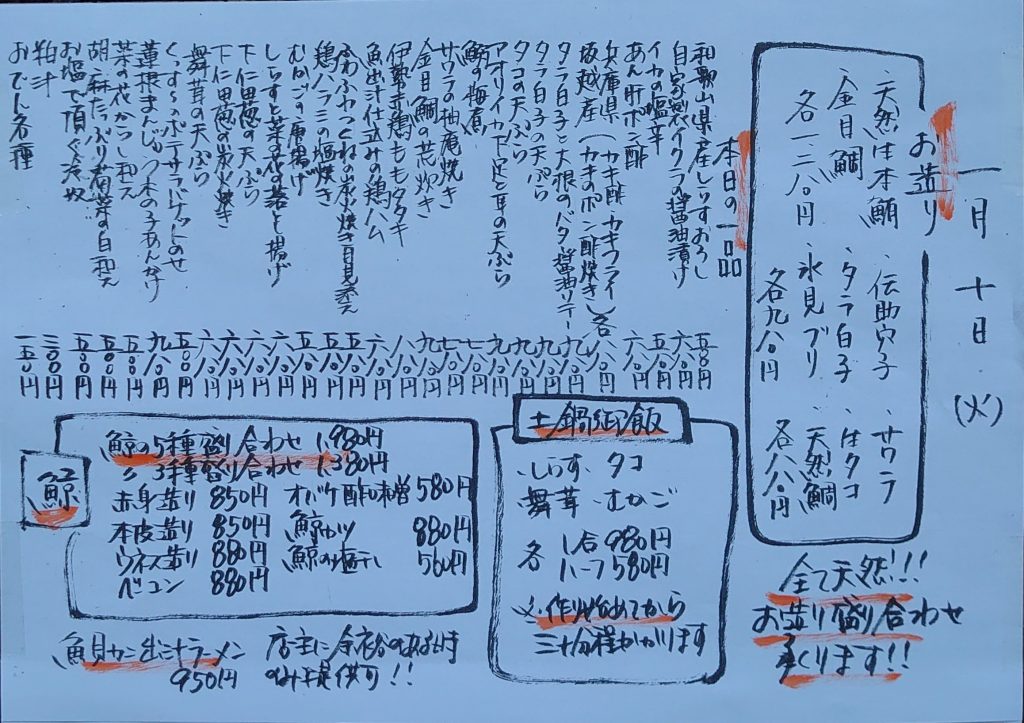 一月十日(火)
お造り
・天然生本鮪
・金目鯛
各一、二八〇円
・伝助穴子
・タラ白子
・氷見ブリ
各九八〇円
・サワラ
・生タコ
・天然鯛
各八八〇円
全て天然!!!
お造り盛り合わせ
承ります!!
本日の一品
和歌山県産しらすおろし 五八〇円
自家製イクラの醤油漬け 六八〇円
イカの塩辛 五八〇円
あん肝ポン酢 六八〇円
兵庫県 (カキ酢・カキフライ)
坂越産 (カキのポン酢焼き) 各八八〇円
タラ白子と大根のバタ醤油ソテー 九八〇円
タラ白子の天ぷら 九八〇円
タコの天ぷら 九八〇円
アオリイカ下足と耳の天ぷら 九八〇円
鮪の梅煮 七八〇円
サワラの柚庵焼き 七八〇円
金目鯛の荒炊き 九八〇円
伊勢赤鶏ももタタキ 八八〇円
魚出汁仕立みの鶏ハム 六八〇円
ふわふわつくねの炭火焼き月見添え
鶏ハラミの塩焼き
むかごの唐揚げ
しらすと菜の花の落とし揚げ
下仁田葱の天ぷら
下仁田葱の炭火焼き
舞茸の天ぷら
くっす〜のポテサラドナッしのせ
蓮根まんじゅう木の子あんかけ
菜の花からし和え
胡麻たっぷり春菊の白和え
お塩で頂く冷奴
粕汁 三〇〇円
おでん各種 一五〇円
土鍋御飯
・しらす・タコ
・舞茸・むかご
各 1合 980円
ハーフ 580円
※作り始めてから
三十分程かかります
鯨
鯨の5種盛り合わせ 1,980円
〃 3種盛り合わせ 1,380円
赤身造り 850円 オバケ酢味噌 580円
本皮造り 850円 鯨カツ 880円
ウネス造り 880円 鯨の塩干し 560円
ベーコン 880円
魚貝カニ出汁ラーメン
950円
店主に余裕のある時
のみ提供可!!